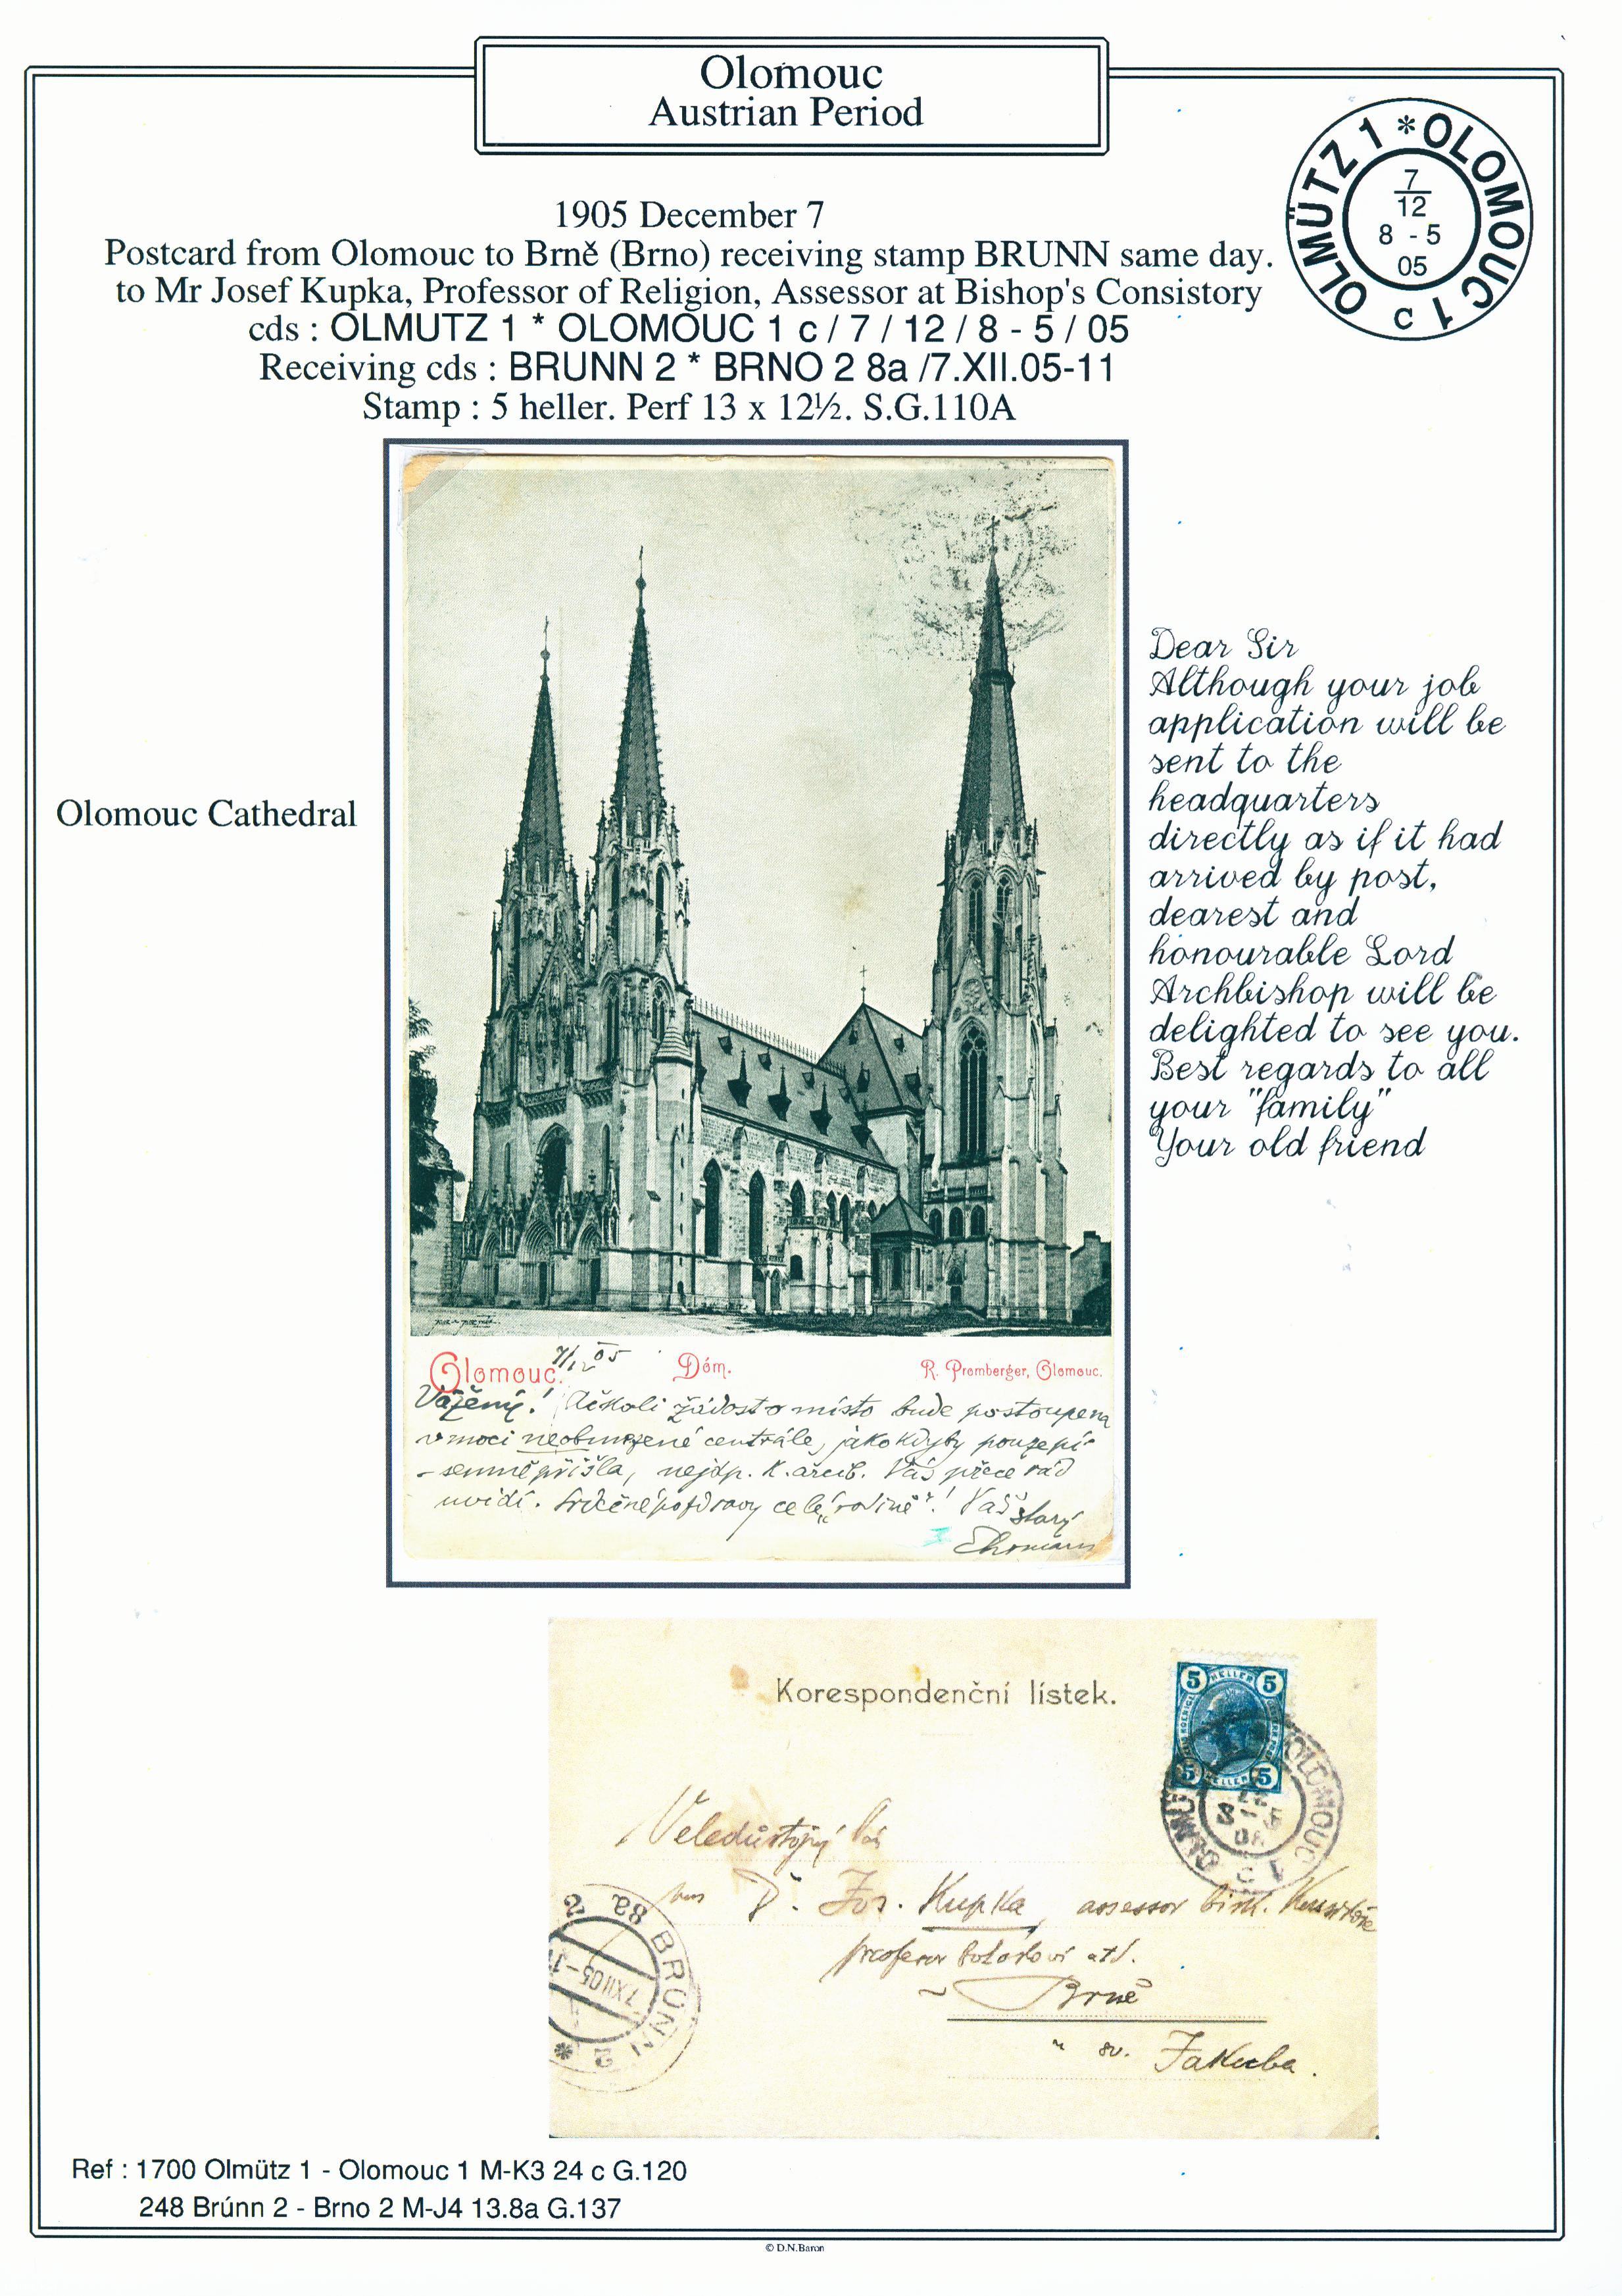 Olomouc
Austrian Period
OLMÜTZ 1 * OLOMOUC 1 c
7
12
8 - 5
05
1905 December 7
Postcard from Olomouc to Brně (Brno) receiving stamp BRUNN same day.
to Mr Josef Kupka, Professor of Religion, Assessor at Bishop's Consistory
cds : OLMUTZ 1 * OLOMOUC 1 c / 7 / 12 / 8 - 5 / 05
Receiving cds : BRUNN 2 * BRNO 2 8a /7.XII.05-11
Stamp : 5 heller. Perf 13 x 12½. S.G.110A
Olomouc Cathedral
Dear Sir
Although your job
application will be
sent to the
headquarters
directly as if it had
arrived by post,
dearest and
honourable Lord
Archbishop will be
delighted to see you.
Best regards to all
your "family"
Your old friend
Olomouc. 7/12 05 Dóm. R. Promberger, Olomouc.
Vážený! Ačkoli žádost o místo bude postoupena
v moci centrále, jako kdyby pouze pí-
semně přišla, nejdp. K. arcib. Vás přece rád
uvidí. Srdečné pozdravy celé „rodině"! Váš starý
Korespondenční lístek.
5 HELLER 5
5 HELLER 5
OLMÜTZ OLOMOUC 1 c
8 - 5
Veledůstojný Pán
Dr. Jos. Kupka, assessor bisk.
professor atd.
Brně
u sv. Jakuba.
BRÜNN 2 * 2 8a
7.XII.05-1
Ref : 1700 Olmütz 1 - Olomouc 1 M-K3 24 c G.120
248 Brúnn 2 - Brno 2 M-J4 13.8a G.137
© D.N.Baron